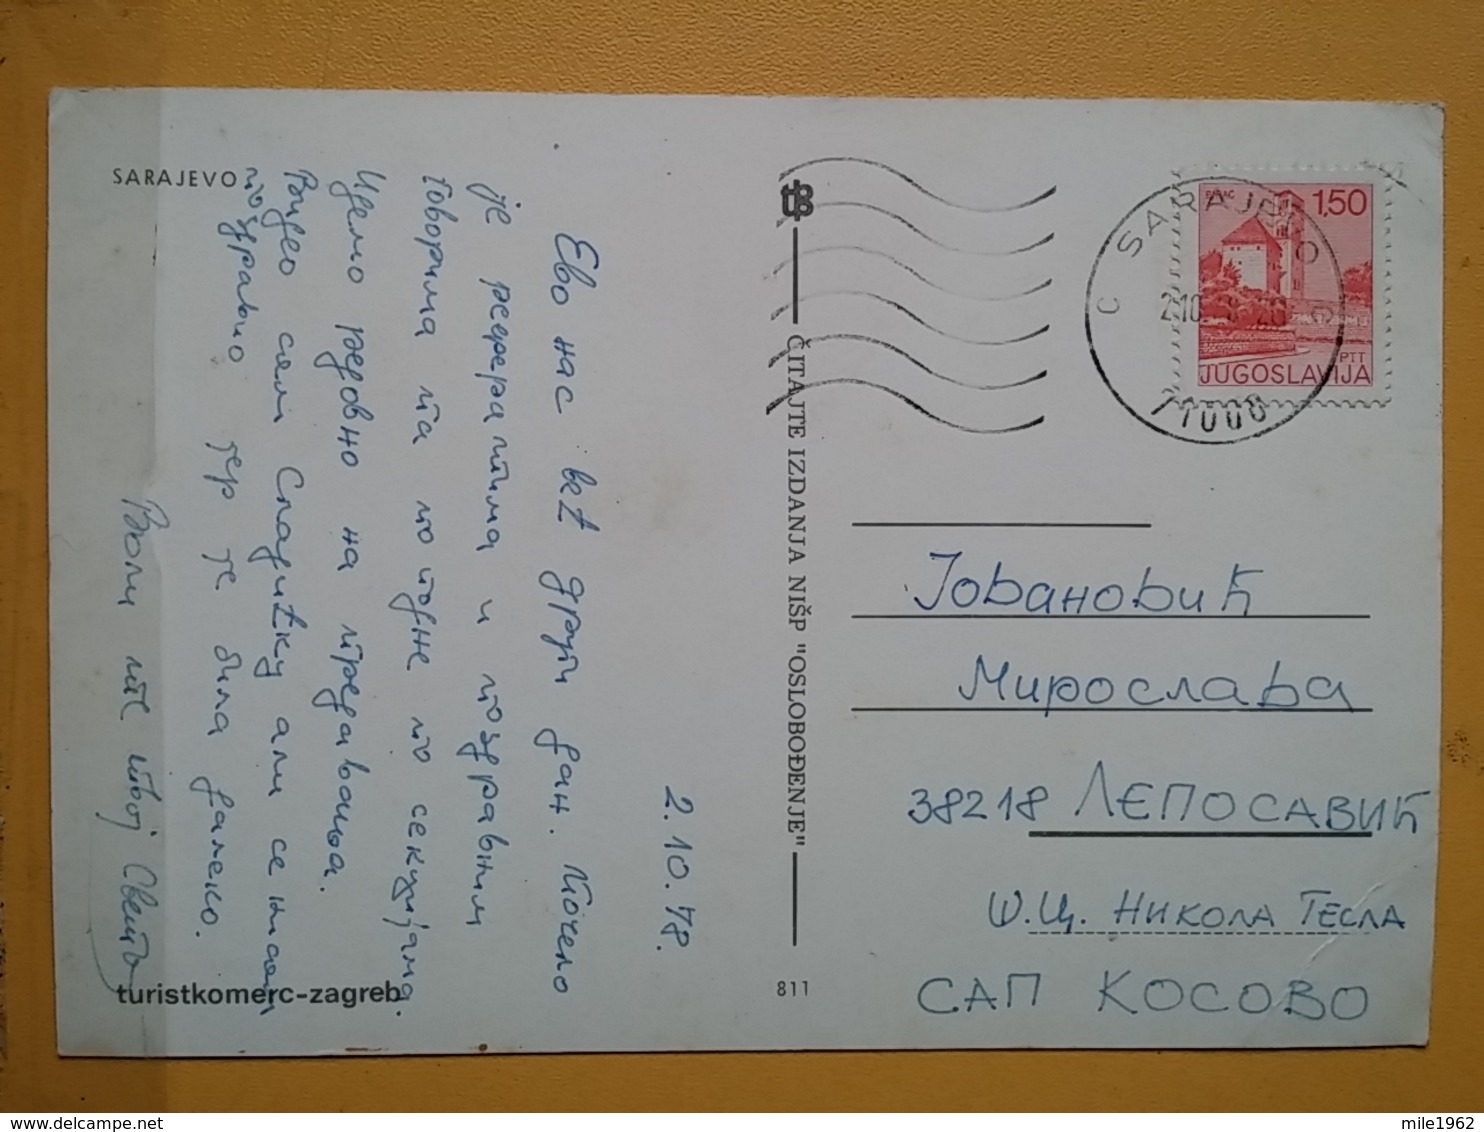 SARAJEVO
2.10.78.
Ево нас већ други дан. Почело
је рефератима и поздравним
говорима па по подне по секцијама.
Идемо редовно на предавања.
Видео сам Спасићку али се нисам
поздравио јер је била далеко.
Воли те твој Света
turistkomerc-zagreb
ČITAJTE IZDANJA NIŠP "OSLOBOĐENJE"
811
SARAJEVO
71000
1,50
PTT
JUGOSLAVIJA
Јовановић
Мирослава
38218 ЛЕПОСАВИЋ
Ш.Ц. НИКОЛА ТЕСЛА
САП КОСОВО
mile1962